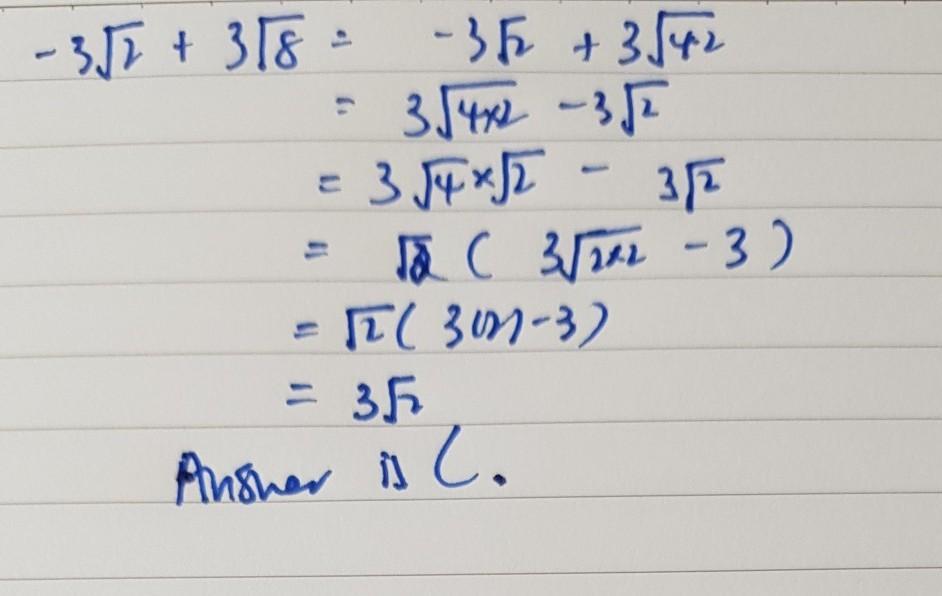 -3√2 + 3√8 = -3√2 + 3√4×2
= 3√4×2 - 3√2
= 3√4×√2 - 3√2
= √2 ( 3√2×2 - 3 )
= √2 ( 3(2)-3)
= 3√2
Answer is C.